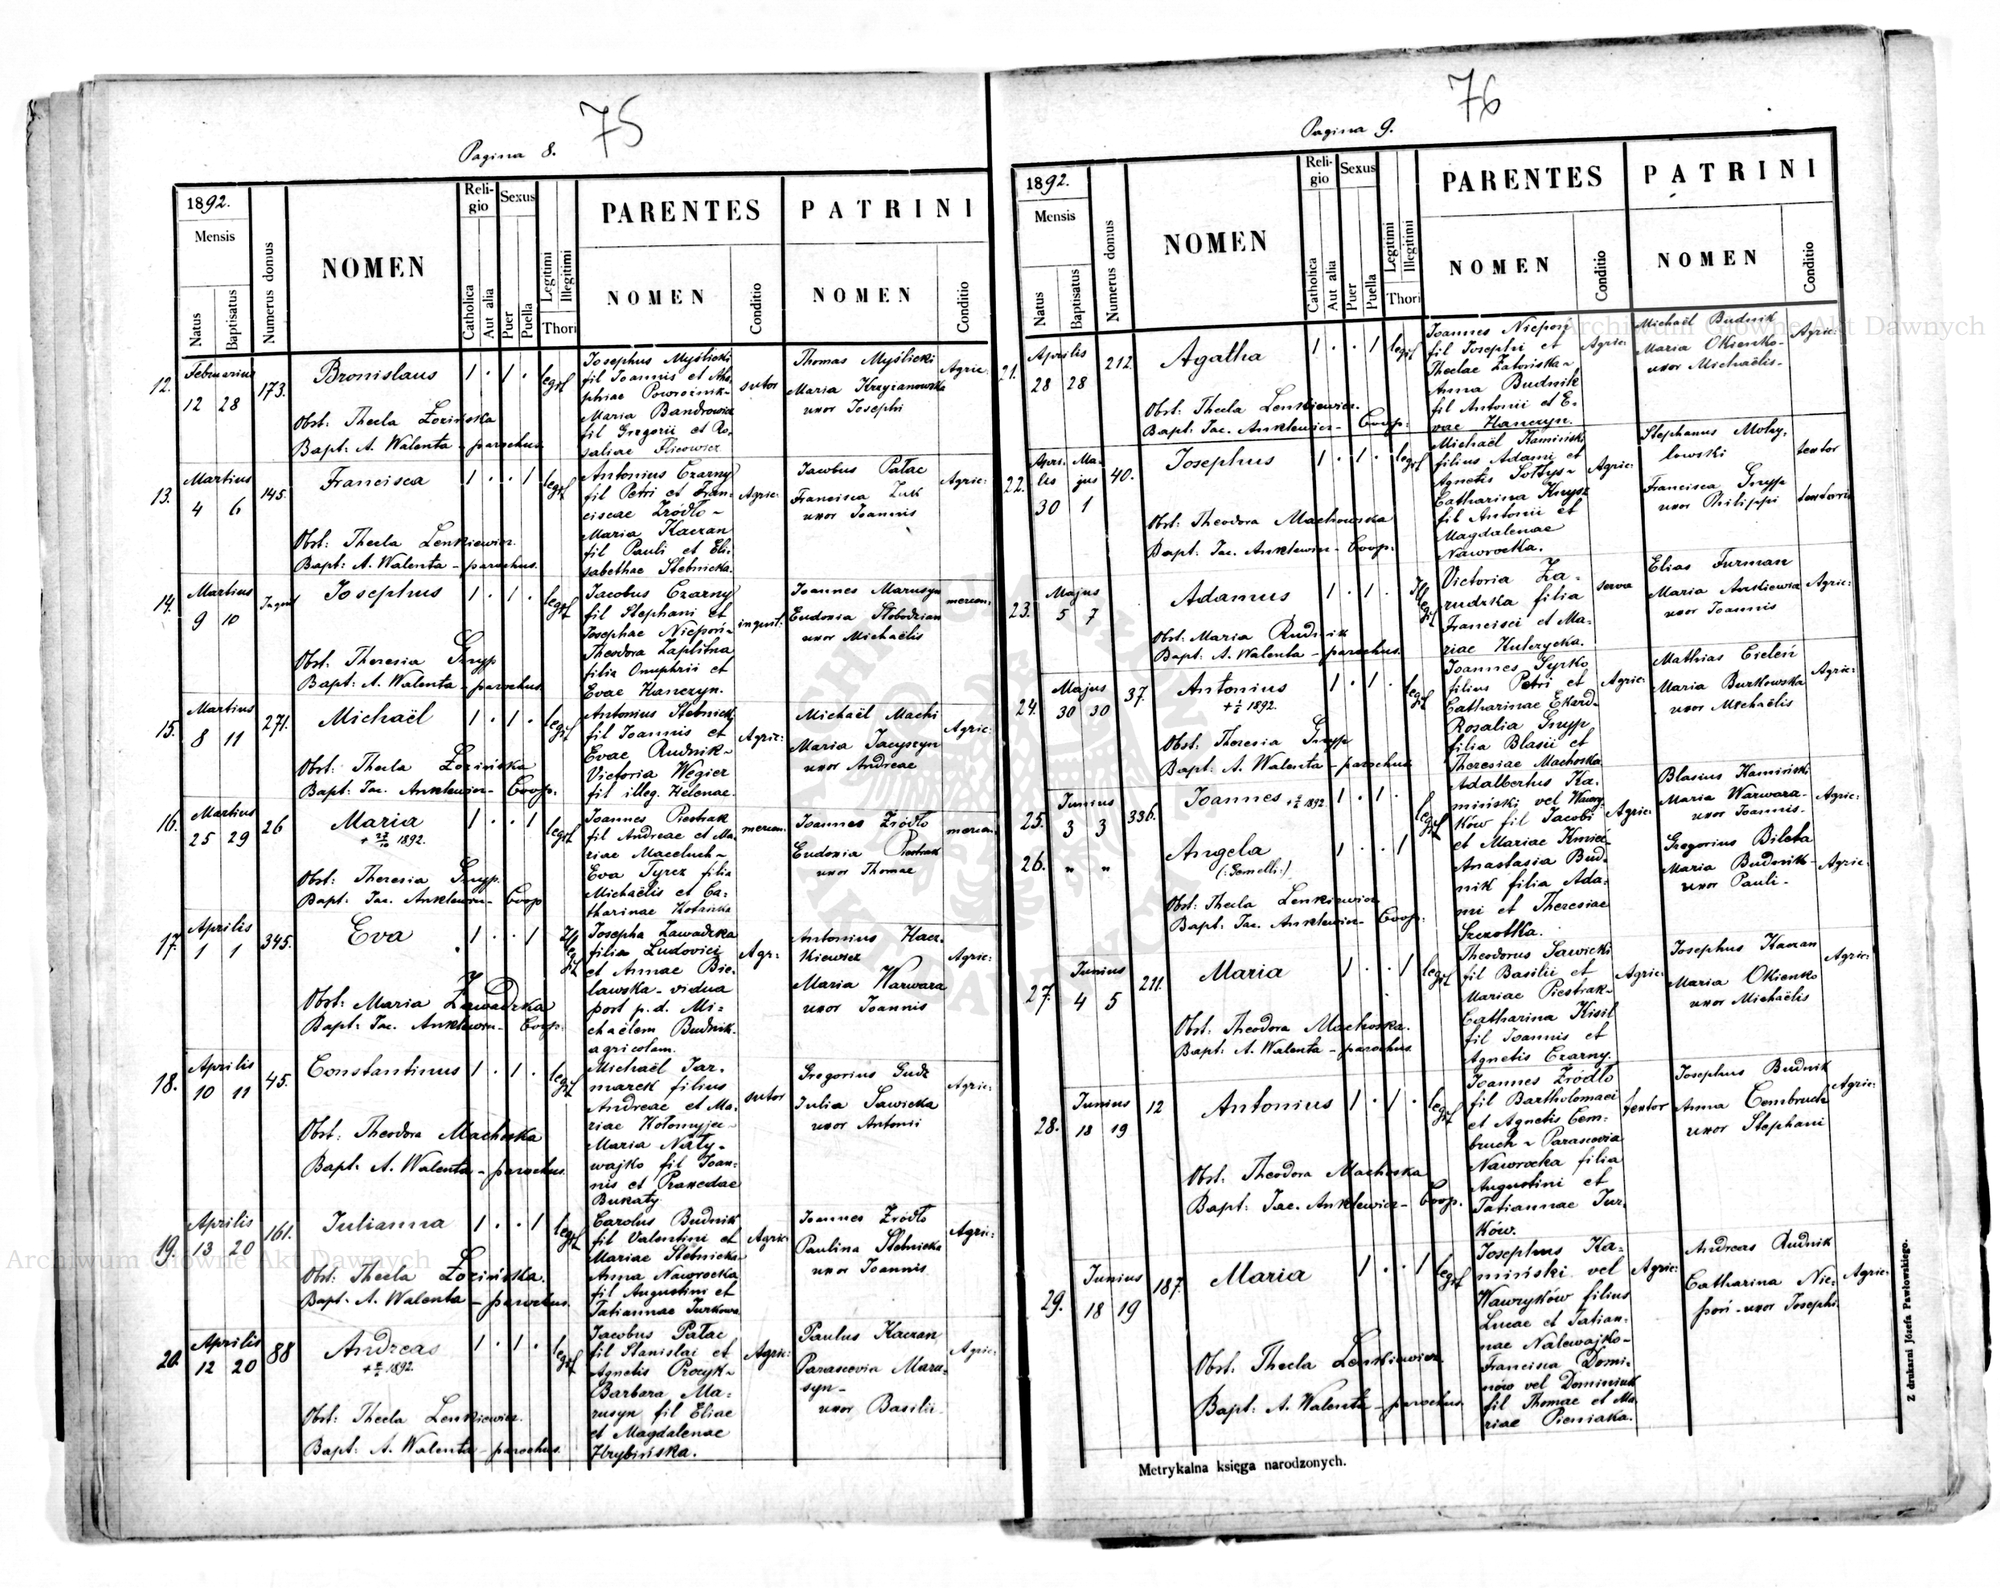 75
Pagina 8.
1892.
Mensis
Natus
Baptisatus
Numerus domus
NOMEN
Reli-
gio
Catholica
Aut alia
Sexus
Puer
Puella
Legitimi
Illegitimi
Thori
PARENTES
NOMEN
Conditio
PATRINI
NOMEN
Conditio
12.
Februarius
12 28
173.
Bronislaus
1 . 1 .
Obst: Thecla
Bapt: A. Walenta - parochus.
Josephus Myślicki
fil Joannis et
Maria
fil Gregorii et Ro-
saliae
sutor
Thomas Myślicki
Maria Krzyżanowska
uxor Josephi
Agric:
13.
Martius
4 6
145.
Francisca
1 . . 1
Obst: Thecla Lenkiewicz.
Bapt: A. Walenta - parochus.
Antonius Czarny
fil Petri et Fran-
ciscae Źrodło -
Maria Kaczan
fil Pauli et Eli-
sabethae Stebnicka.
Agric:
Jacobus Pałac
Francisca Żuk
uxor Joannis
Agric:
14.
Martius
9 10
Josephus
1 . 1 .
Obst: Theresia Gnyp
Bapt: A. Walenta - parochus
Jacobus Czarny
fil Stephani et
Josephae Niepoń-
Theodora
filia Onuphrii et
Evae Hanczyn.
inquil:
Joannes Marusyn
Eudoxia Słobodzian
uxor Michaëlis
mercen:
15.
Martius
8 11
271.
Michaël
1 . 1 .
Obst: Thecla
Bapt: Jac. Anklewicz - Coop:
Antonius Stebnicki
fil Joannis et
Evae Rudnik -
Victoria Węgier
fil illeg. Helenae.
Agric:
Michaël Machi
Maria Jacyszyn
uxor Andreae
Agric:
16.
Martius
25 29
26
Maria
1892.
1 . . 1
Obst: Theresia Gnyp.
Bapt: Jac. Anklewicz - Coop
Joannes Piestrak
fil Andreae et Ma-
riae
Eva Tyrcz filia
Michaëlis et Ca-
tharinae
mercen:
Joannes Źródło
Eudoxia Piestrak
uxor Thomae
mercen:
17.
Aprilis
1 1
345.
Eva
1 . . 1
Obst: Maria Zawadzka
Bapt: Jac. Anklewicz - Coop:
Josepha Zawadzka
filia Ludovici
et Annae Bie-
lawska - vidua
post p. d. Mi-
chaëlem Budnik -
agricolam.
Agr:
Antonius Hacz-
kiewicz
Maria Warwara
uxor Joannis
Agric:
18.
Aprilis
10 11
45.
Constantinus
1 . 1 .
Obst: Theodora Machoska
Bapt: A. Walenta - parochus.
Michaël Jar-
marek filius
Andreae et Ma-
riae
Maria Naly-
wajko fil Joan-
nis et Praxedae
Bukaty
sutor
Gregorius Gudz
Julia Sawicka
uxor Antonii
Agric:
19.
Aprilis
13 20
161.
Julianna
1 . . 1
Obst: Thecla
Bapt: A. Walenta - parochus.
Carolus Budnik
fil Valentini et
Mariae Stebnicka
Anna Nawrocka
fil Augustini et
Tatiannae Turkowa
Agric:
Joannes Źródło
Paulina Stebnicka
uxor Joannis
Agric:
20.
Aprilis
12 20
88
Andreas
1892.
1 . 1 .
Obst: Thecla Lenkiewicz.
Bapt: A. Walenta - parochus.
Jacobus Pałac
fil Stanislai et
Agnetis Procyk -
Barbara Ma-
rusyn fil Eliae
et Magdalenae
Hrybińska.
Agric:
Paulus Kaczan
Parascevia Maru-
syn -
uxor Basilii
Agric:
76
Pagina 9.
1892.
Mensis
Natus
Baptisatus
Numerus domus
NOMEN
Reli-
gio
Catholica
Aut alia
Sexus
Puer
Puella
Legitimi
Illegitimi
Thori
PARENTES
NOMEN
Conditio
PATRINI
NOMEN
Conditio
21.
Aprilis
28 28
212.
Agatha
1 . . 1
Obst: Thecla Lenkiewicz.
Bapt: Jac. Anklewicz - Coop:
Joannes Niepoń
fil Josephi et
Theclae Zatońska -
Anna Budnik
fil Antonii et E-
vae Hanczyn.
Agric:
Michaël Budnik
Maria Okienko -
uxor Michaëlis -
Agric:
22.
Apri- Ma-
lis jus
30 1
40.
Josephus
1 . 1 .
Obst: Theodora Machowska
Bapt: Jac. Anklewicz - Coop:
Michaël Kamiński
filius Adami et
Agnetis Sołtys -
Catharina Knysz
fil Antonii et
Magdalenae
Nawrocka.
Agric:
Stephanus Moty-
lowski
Francisca Gnyp
uxor Philippi
textor
textoris
23.
Majus
5 7
Adamus
1 . 1 .
Obst: Maria Rudnik
Bapt: A. Walenta - parochus.
Victoria Za-
rudzka filia
Francisci et Ma-
riae Kuterycka.
serva
Elias Furman
Maria
uxor Joannis
Agric:
24.
Majus
30 30
37.
Antonius
1892.
1 . 1 .
Obst: Theresia Gnyp
Bapt: A. Walenta - parochus
Joannes Syrko
filius Petri et
Catharinae Ekard -
Rosalia Gnyp
filia Blasii et
Theresiae Machoska.
Agric:
Mathias Cieleń
Maria Burkowska
uxor Michaëlis
Agric:
25.
Junius
3 3
336.
Joannes
1892.
1 . 1 .
26.
" "
Angela
(: Gemelli :)
1 . . 1
Obst: Thecla Lenkiewicz
Bapt: Jac. Anklewicz - Coop:
Adalbertus Ka-
miński vel Wawry-
ków fil Jacobi
et Mariae Kmieć -
Anastasia Bud-
nik filia Ada-
mi et Theresiae
Szczotka.
Agric:
Blasius Kamiński
Maria Warwara -
uxor Joannis -
Gregorius Bileta
Maria Budnik -
uxor Pauli -
Agric:
Agric:
27.
Junius
4 5
211.
Maria
1 . . 1
Obst: Theodora Machoska.
Bapt: A. Walenta - parochus
Theodorus Sawicki
fil Basilii et
Mariae Piestrak -
Catharina Kisil
fil Joannis et
Agnetis Czarny.
Agric:
Josephus Kaczan
Maria Okienko
uxor Michaëlis
Agric:
28.
Junius
18 19
12
Antonius
1 . 1 .
Obst: Theodora Machoska
Bapt: Jac. Anklewicz - Coop.
Joannes Źródło
fil Bartholomaei
et Agnetis Cem-
bruch - Parascevia
Nawrocka filia
Augustini et
Tatiannae Tur-
ków.
textor
Josephus Budnik
Anna Cembruch
uxor Stephani
Agric:
29.
Junius
18 19
187.
Maria
1 . . 1
Obst: Thecla Lenkiewicz
Bapt: A. Walenta - parochus.
Josephus Ka-
miński vel
Wawryków filius
Lucae et Tatian-
nae Nalewajko -
Francisca Domi-
nów vel Dominiuk
fil Thomae et Ma-
riae Pieniaka.
Agric:
Andreas Rudnik
Catharina Nie-
poń - uxor Josephi
Agric:
Metrykalna księga narodzonych.
Z drukarni Józefa Pawłowskiego.
Archiwum Główne Akt Dawnych
Archiwum Główne Akt Dawnych